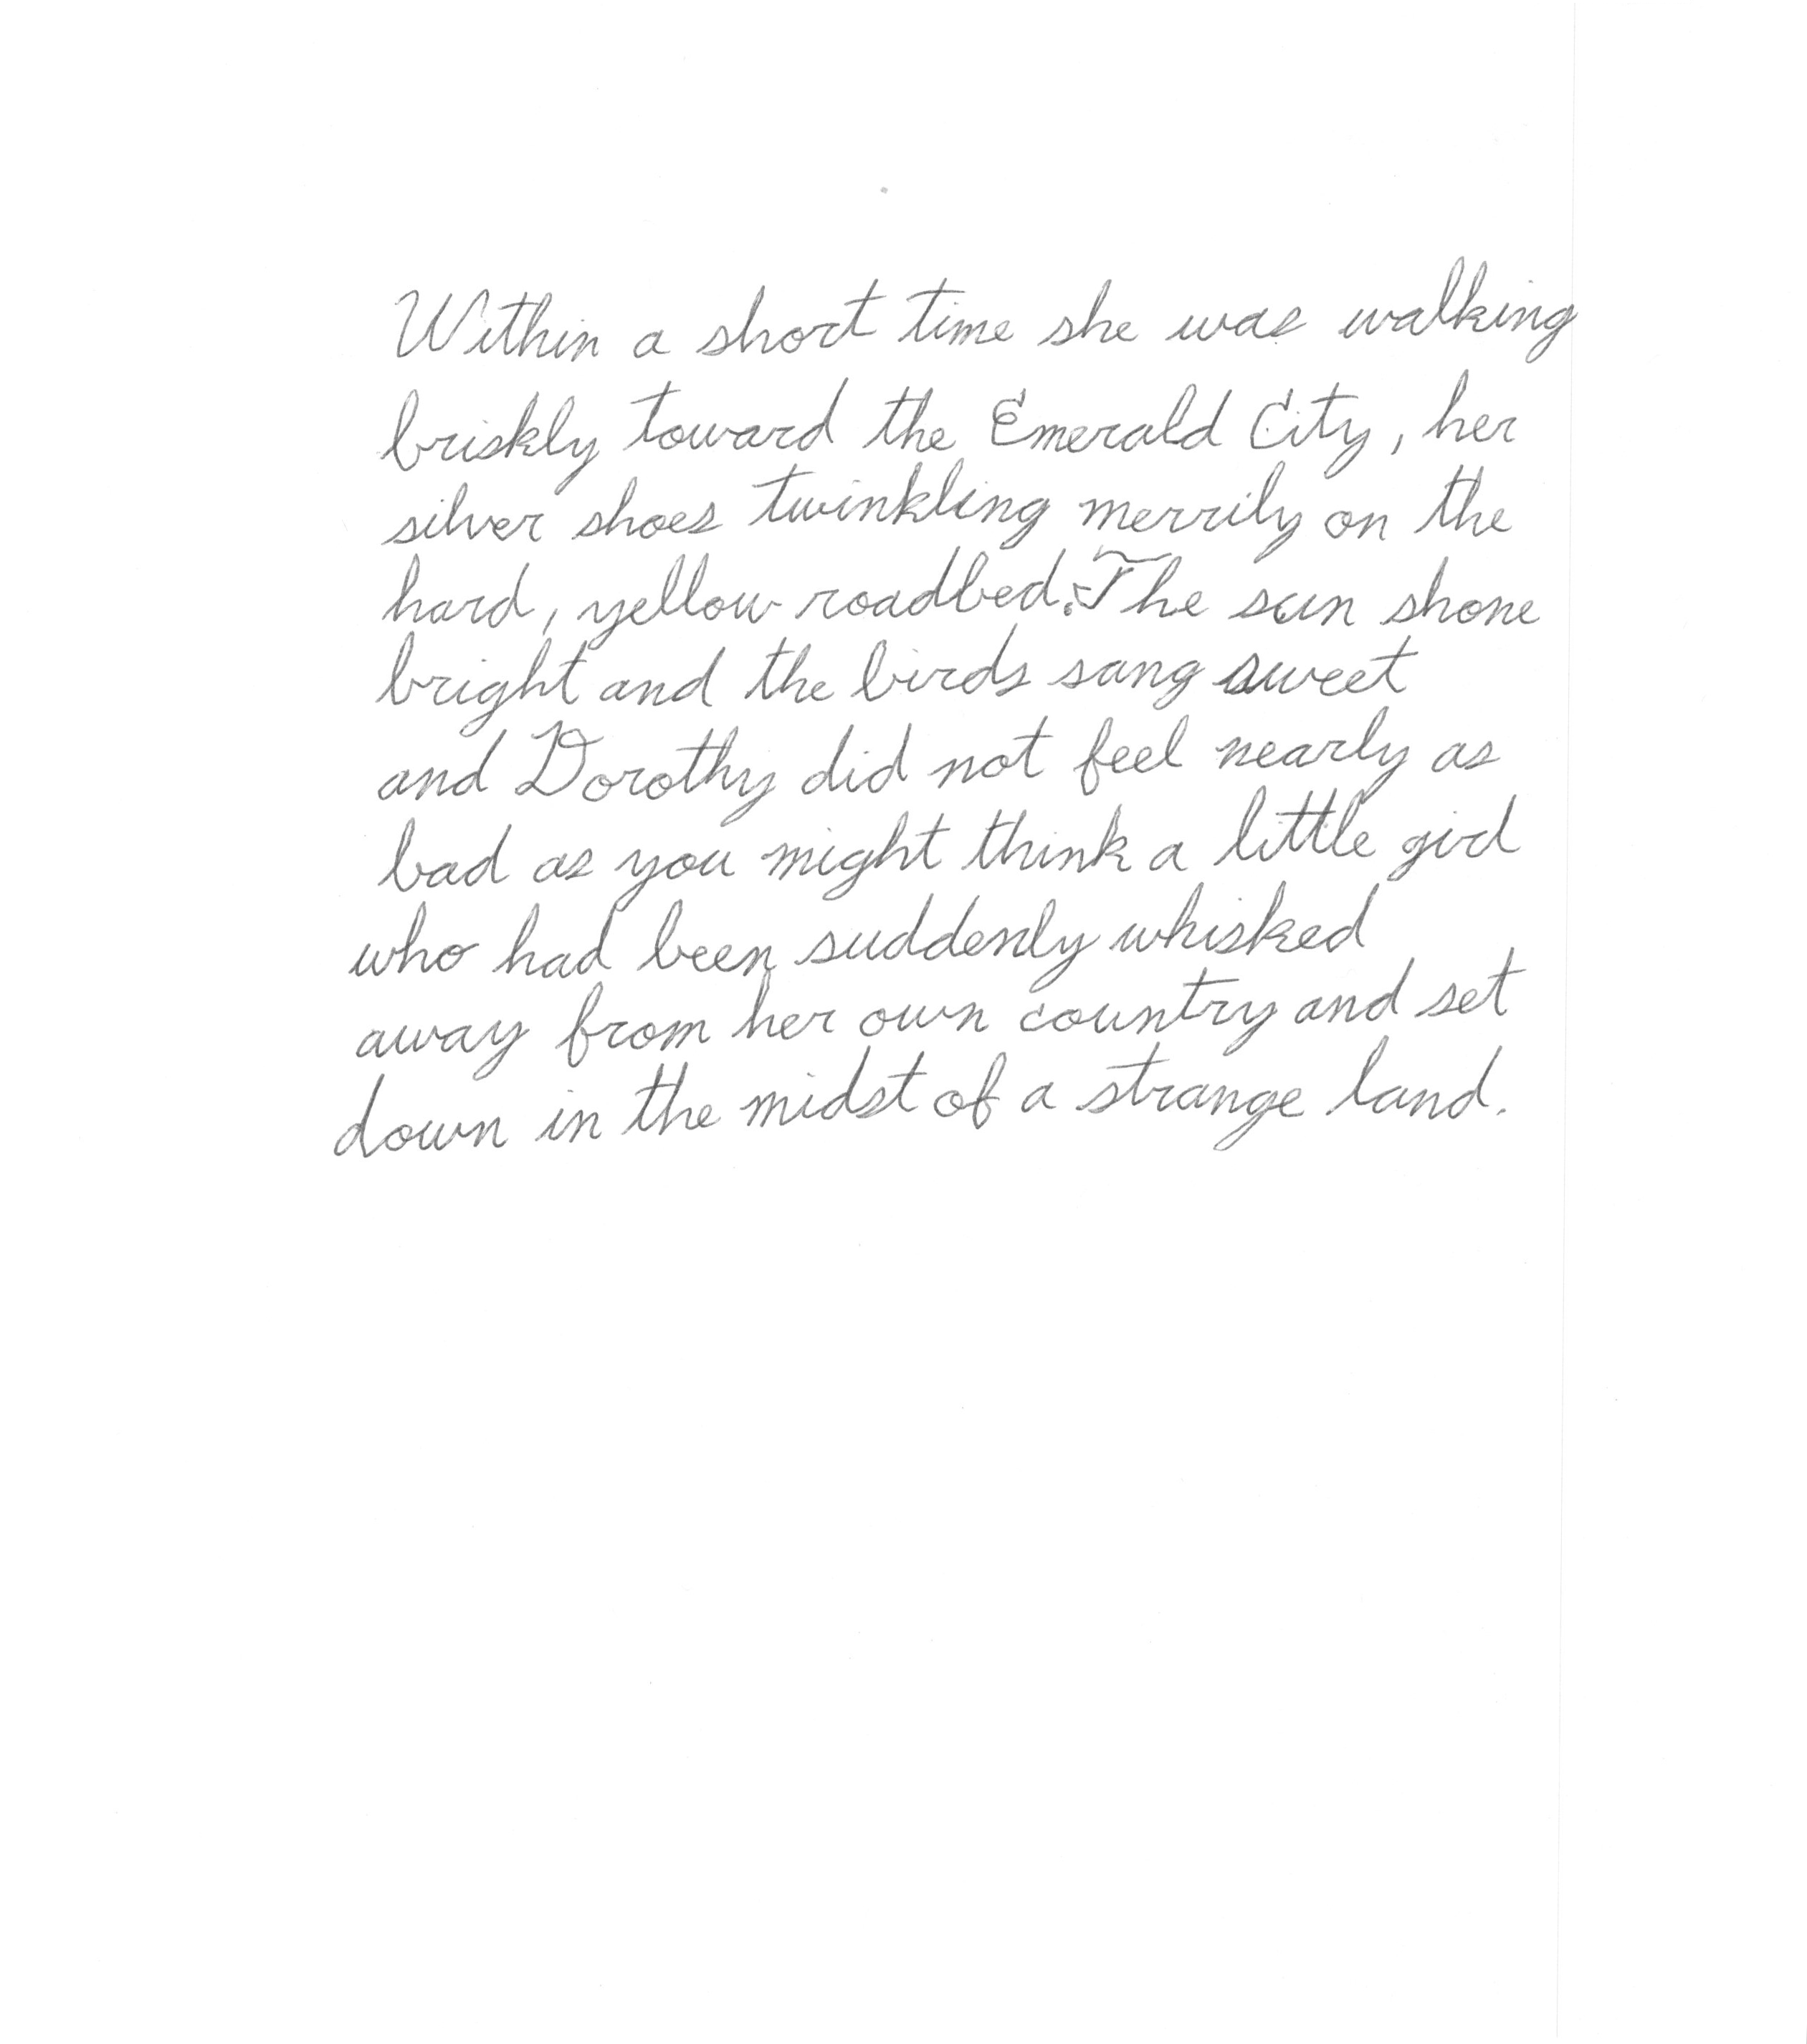 Within a short time she was walking
briskly toward the Emerald City, her
silver shoes twinkling merrily on the
hard, yellow roadbed. The sun shone
bright and the birds sang sweet
and Dorothy did not feel nearly as
bad as you might think a little girl
who had been suddenly whisked
away from her own country and set
down in the midst of a strange land.